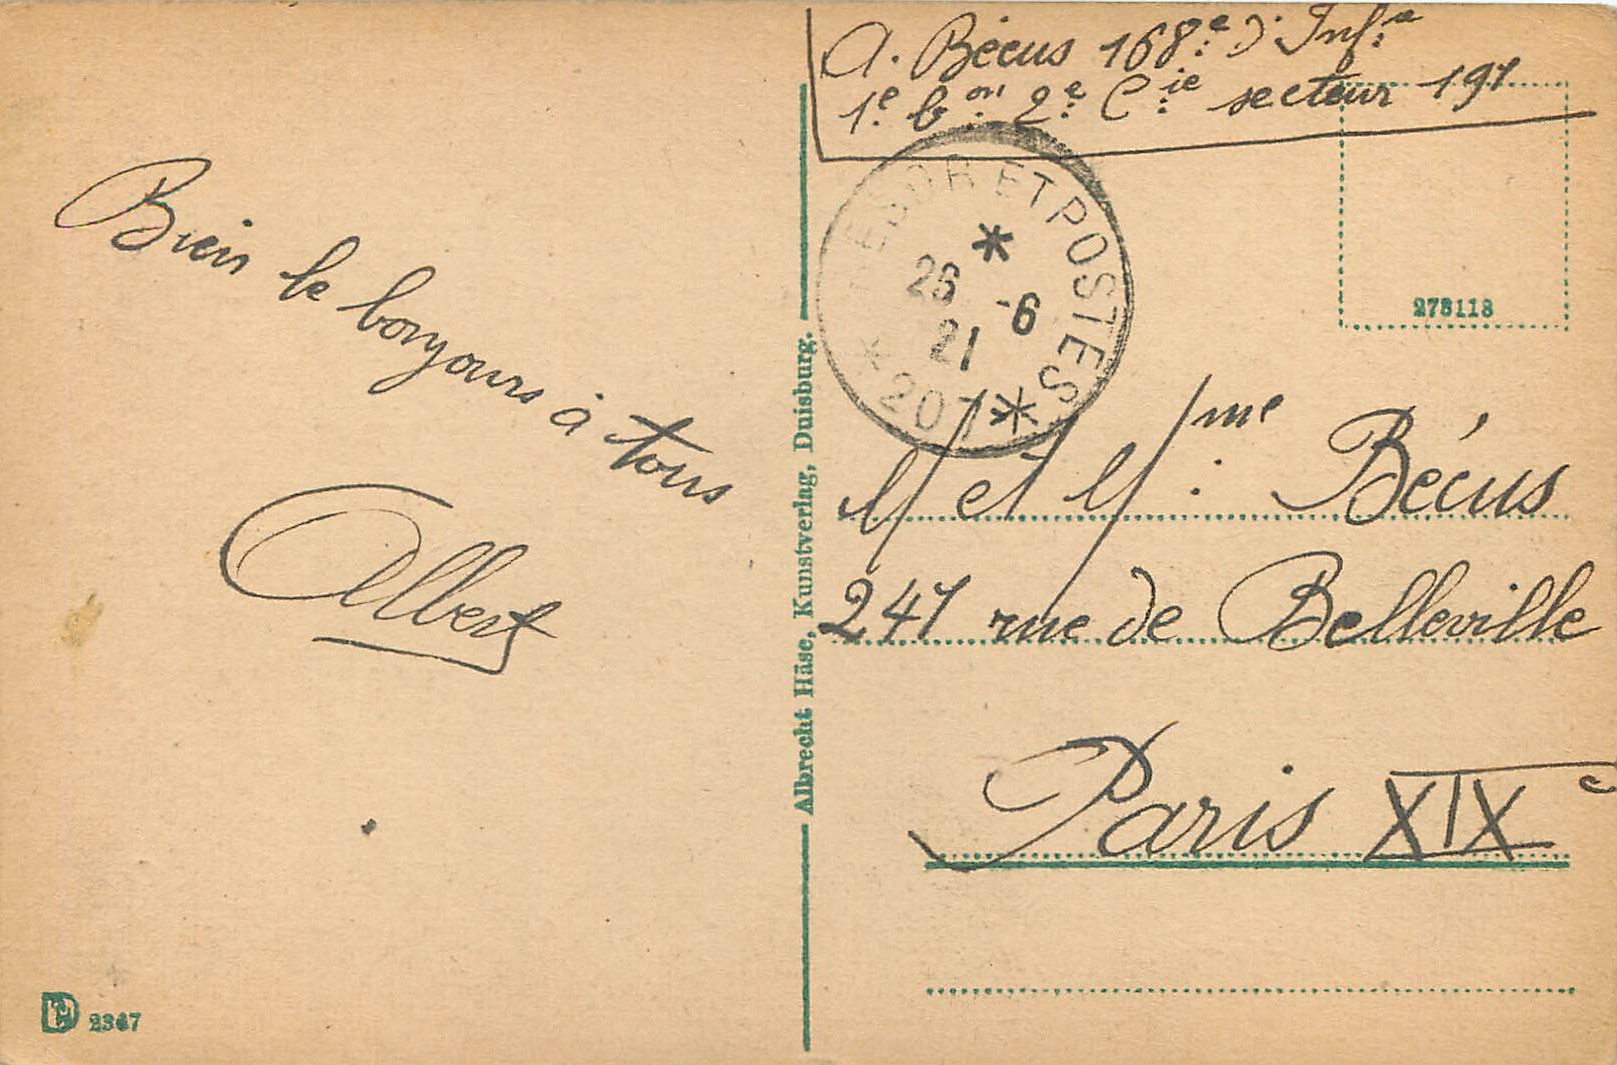 A. Bécus 168e d'Infie
1e bon 2e Cie secteur 191
Bien le bonjours à tous
Albert
TRESOR ET POSTES
26 -6
21
* 207 *
278118
M et Mme Bécus
241 rue de Belleville
Paris XIXe
Albrecht Häse, Kunstverlag, Duisburg.
2347